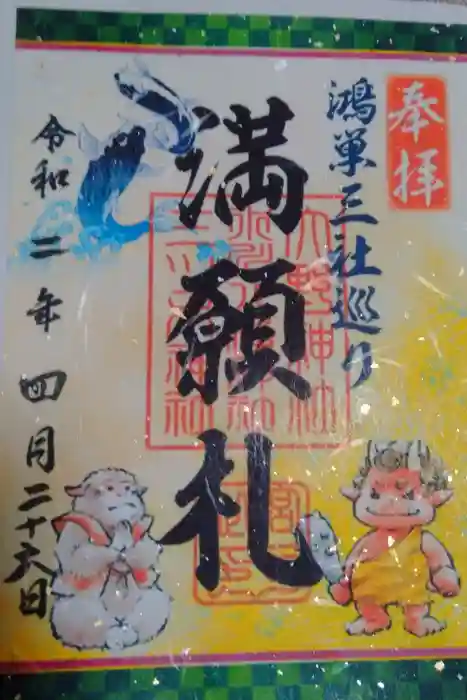 奉拝
鴻巣三社巡り
満願札
令和二年四月二十六日